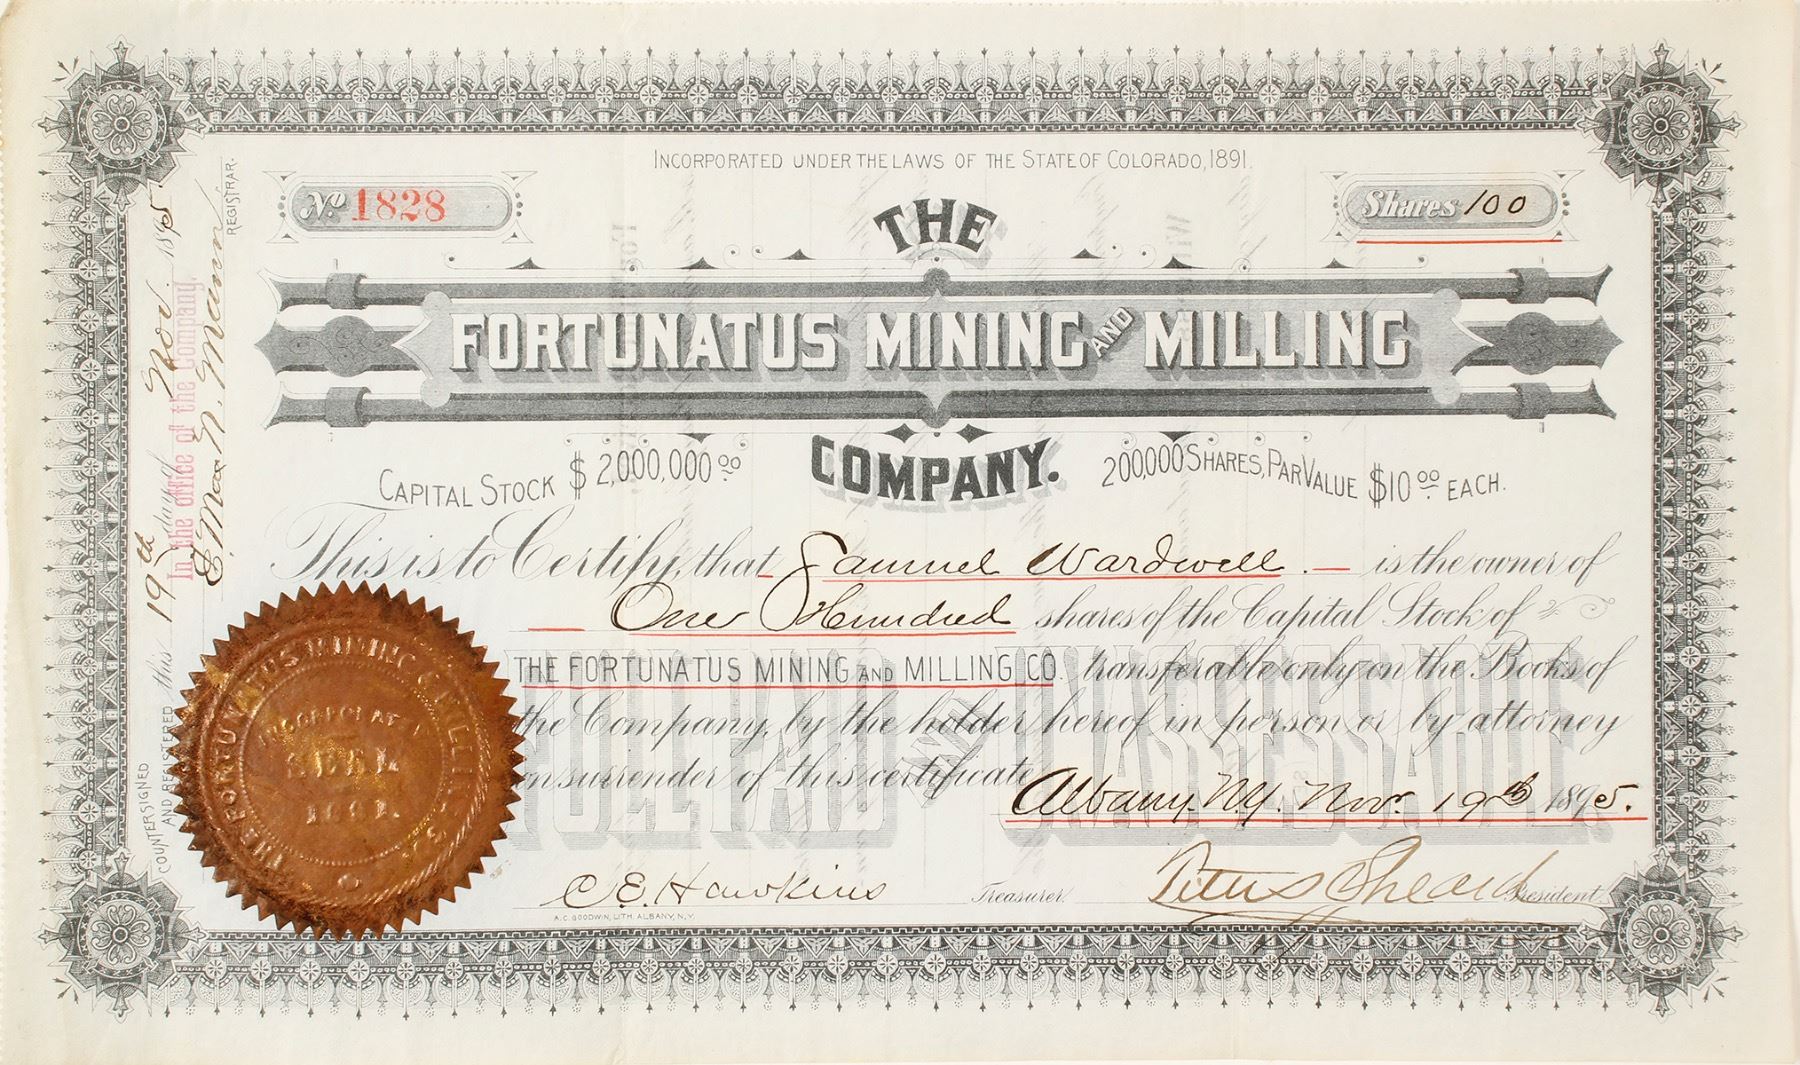 INCORPORATED UNDER THE LAWS OF THE STATE OF COLORADO, 1891.
No. 1828
Shares 100
THE
FORTUNATUS MINING AND MILLING
COMPANY.
CAPITAL STOCK $2,000,000 00
200,000 SHARES, PAR VALUE $10 00 EACH.
This is to Certify, that Samuel Wardwell. is the owner of
One Hundred shares of the Capital Stock of
THE FORTUNATUS MINING AND MILLING CO. transferable only on the Books of
the Company, by the holder hereof in person or by attorney
on surrender of this certificate
FULL PAID AND UNASSESSABLE.
Albany N.Y. Nov. 19th 1895.
C. E. Hawkins Treasurer
Titus Sheard President
A.C. GOODWIN, LITH. ALBANY, N.Y.
COUNTERSIGNED
AND REGISTERED this 19th day of Nov. 1895
In the office of the Company.
REGISTRAR.
THE FORTUNATUS MINING & MILLING CO
INCORPORATED
SEAL
1891.